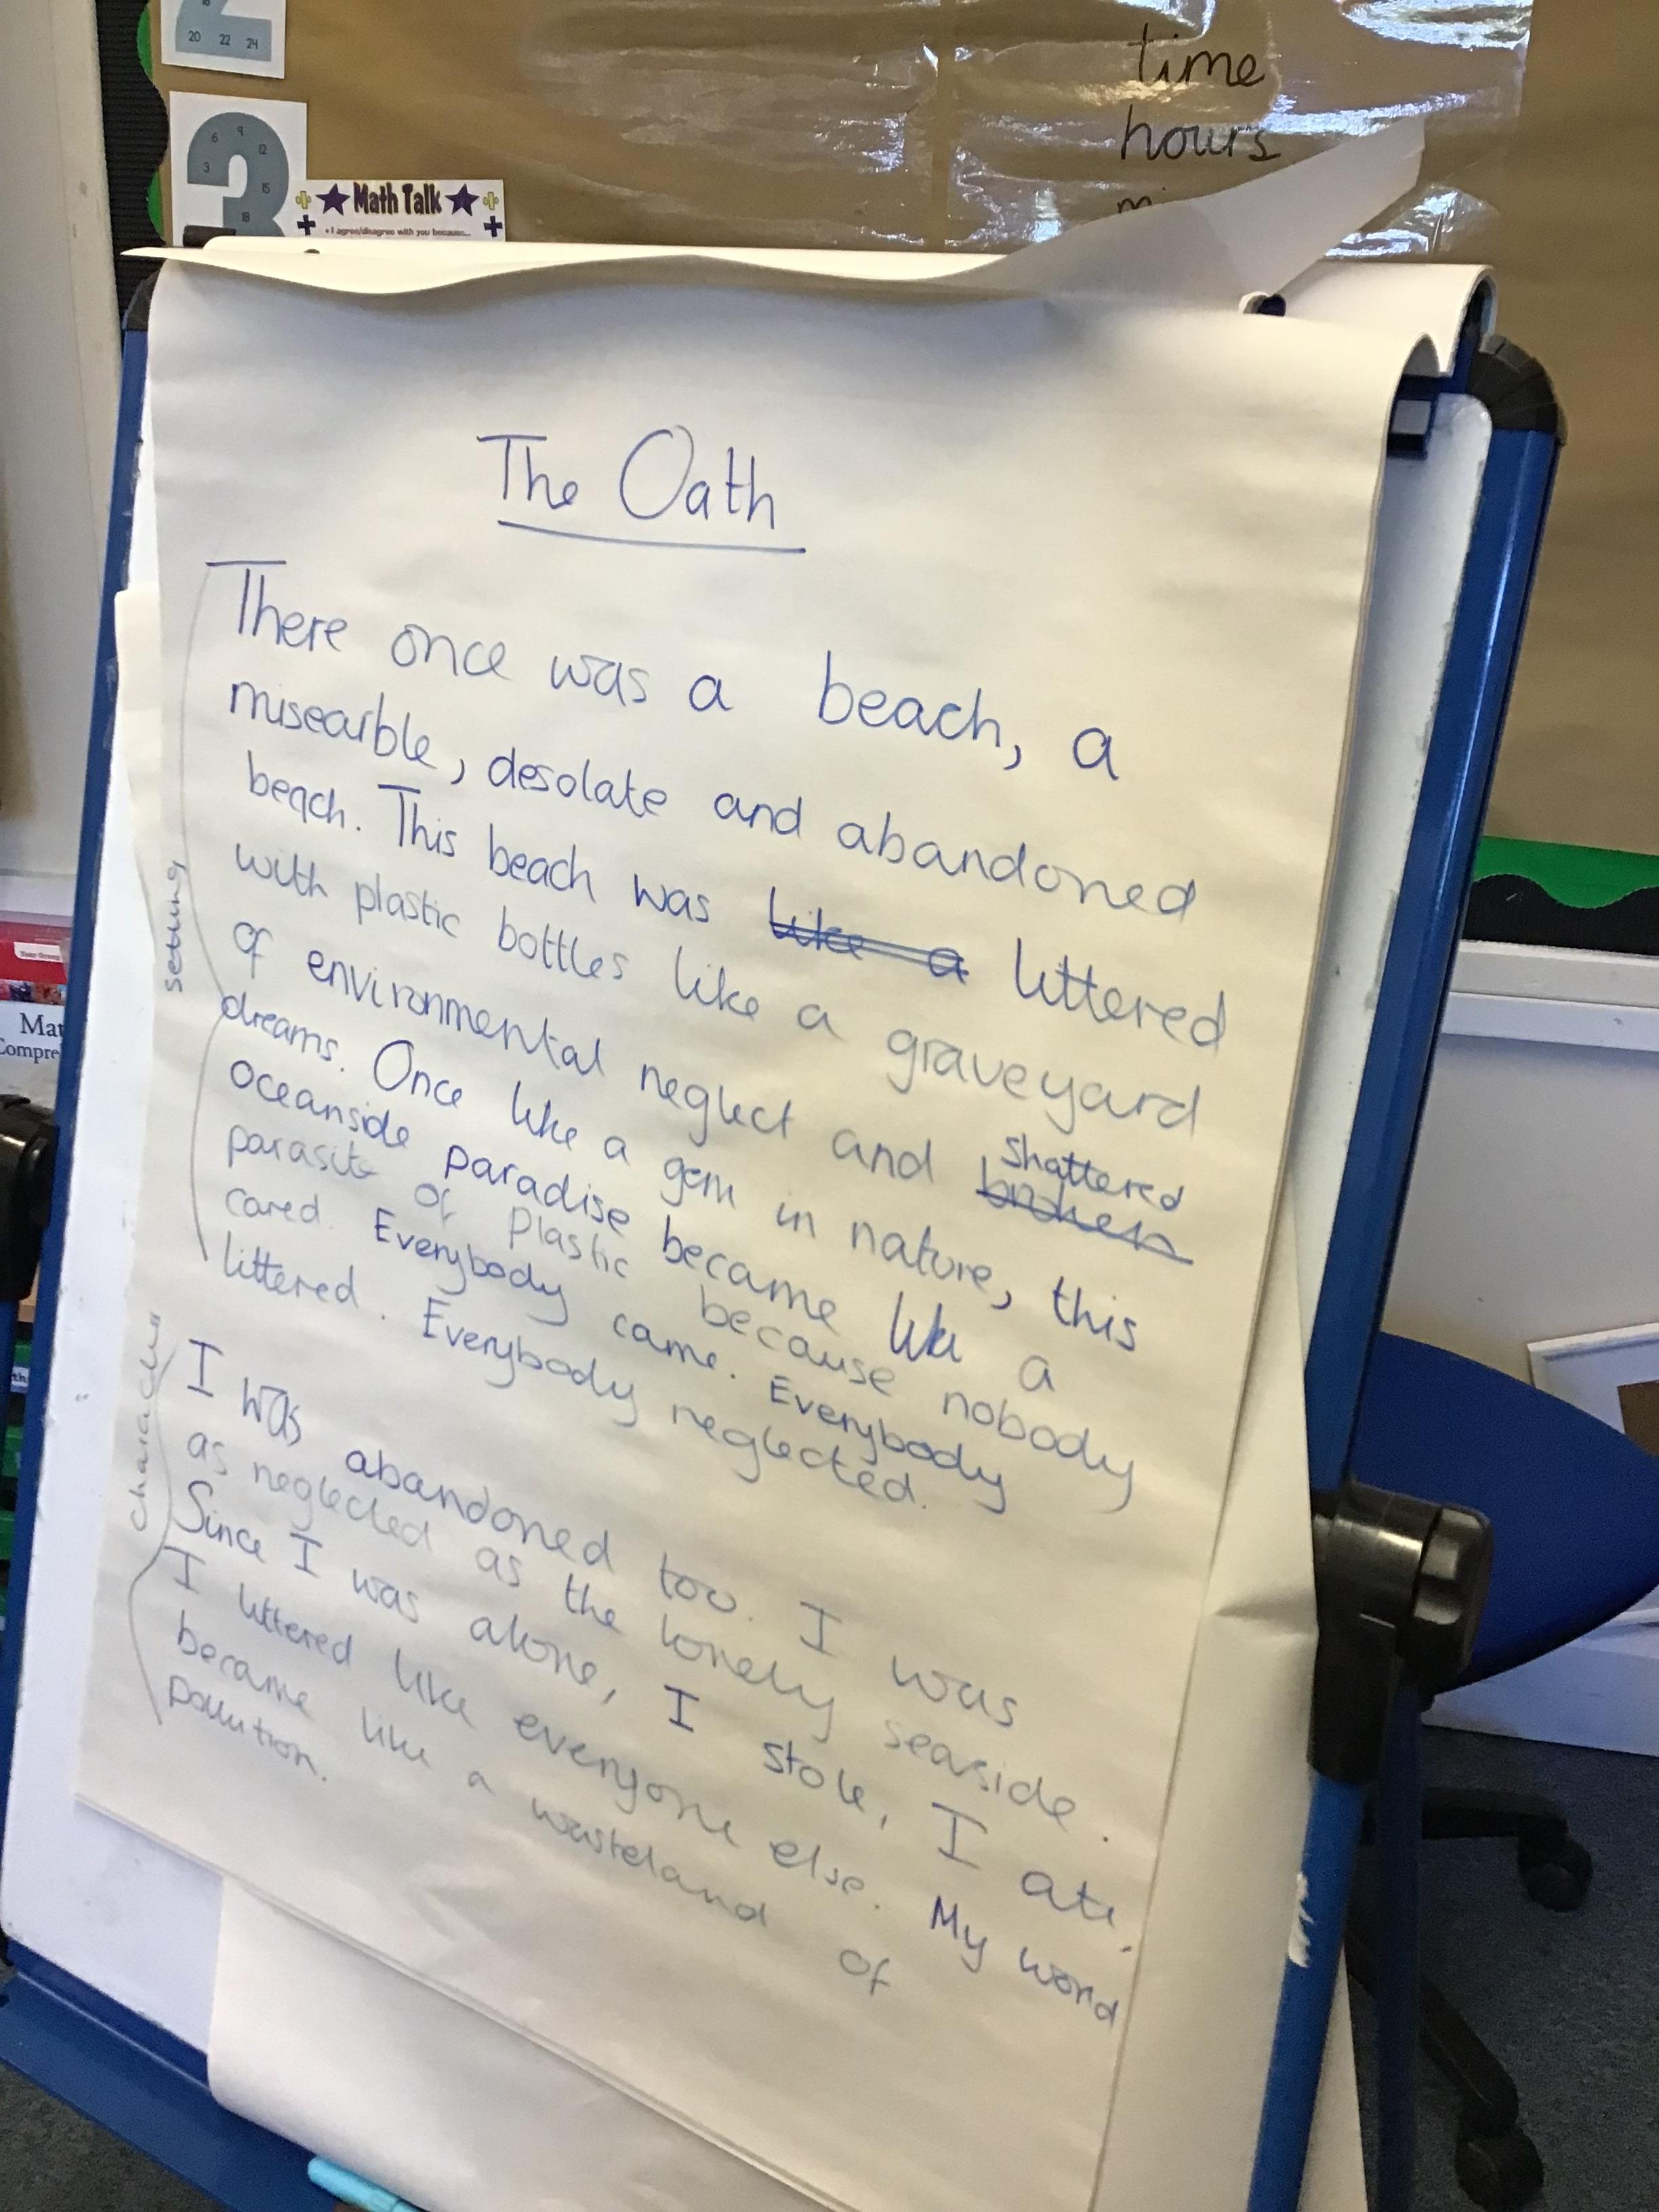 20 22 24
3 6 9 12 15 18
Math Talk
• I agree/disagree with you because...
time
hours
The Oath
There once was a beach, a
misearble, desolate and abandoned
beach. This beach was like a littered
with plastic bottles like a graveyard
of environmental neglect and broken shattered
dreams. Once like a gem in nature, this
oceanside paradise became like a
parasite of plastic because nobody
cared. Everybody came. Everybody
littered. Everybody neglected.
I was abandoned too. I was
as neglected as the lonely seaside.
Since I was alone, I stole, I ate,
I littered like everyone else. My word
became like a wasteland of
pollution.
setting
character
Mat
Compre